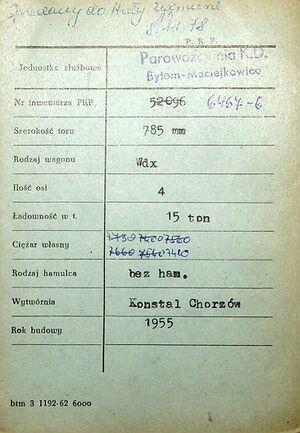 Sprzedany do Huty Zygmunt
P. K. P.
Jednostka służbowa Parowozownia K.D.
Bytom-Maciejkowice
Nr inwentarza PKP 52096 6467-6
Szerokość toru 785 mm
Rodzaj wagonu Wdx
Ilość osi 4
Ładowność w t. 15 ton
Ciężar własny
Rodzaj hamulca bez ham.
Wytwórnia Konstal Chorzów
Rok budowy 1955
btm 3 1192-62 6000